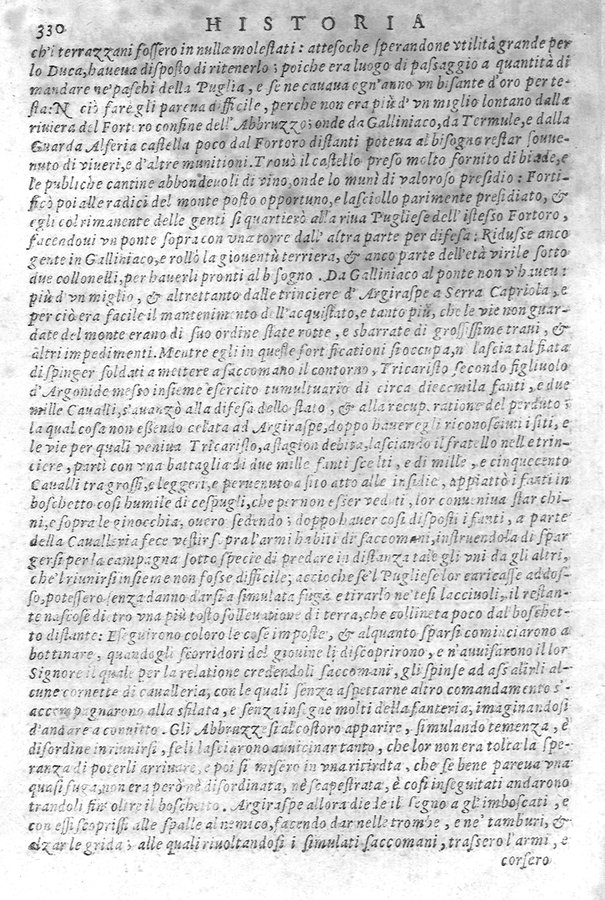 330 HISTORIA
ch'i terrazzani fossero in nulla molestati: attesoche sperandone vtilità grande per
lo Duca, haueua disposto di ritenerlo; poiche era luogo di passaggio a quantità di
mandare ne' paschi della Puglia, e se ne cauaua ogn'anno vn bisante d'oro per te-
sta: N ciò fare gli pareua difficile, perche non era più d'vn miglio lontano dalla
riuiera del Fortoro confine dell'Abbruzzo; onde da Galliniaco, da Termule, e dalla
Guarda Alferia castella poco dal Fortoro distanti poteua al bisogno restar souue-
nuto di viueri, e d'altre munitioni. Trouò il castello preso molto fornito di biade, e
le publiche cantine abbondeuoli di vino, onde lo munì di valoroso presidio: Forti-
ficò poi alle radici del monte posto opportuno, e lasciollo parimente presidiato, &
egli col rimanente delle genti si quartierò alla riua Pugliese dell'istesso Fortoro,
facendoui vn ponte sopra con vna torre dall'altra parte per difesa: Ridusse anco
gente in Galliniaco, e rollò la giouentù terriera, & anco parte dell'età virile sotto
due collonelli, per hauerli pronti al bisogno. Da Galliniaco al ponte non v'haueua
più d'vn miglio, & altrettanto dalle trinciere d'Argiraspe a Serra Capriola, e
per ciò era facile il mantenimento dell'acquistato, e tanto più, che le vie non guar-
date del monte erano di suo ordine state rotte, e sbarrate di grossissime traui, &
altri impedimenti. Mentre egli in queste fortificationi s'occupa, n lascia tal fiata
di spinger soldati a mettere a saccomano il contorno, Tricaristo secondo figliuolo
d'Argonide messo insieme esercito tumultuario di circa diecemila fanti, e due
mille Caualli, s'auanzò alla difesa dello stato, & alla recuperatione del perduto;
la qual cosa non essendo celata ad Argiraspe, doppo hauer egli riconosciuti i siti, e
le vie per quali veniua Tricaristo, a stagion debita, lasciando il fratello nelle trin-
ciere, partì con vna battaglia di due mille fanti scelti, e di mille, e cinquecento
Caualli tra grossi, e leggeri, e peruenuto a sito atto alle insidie, appiattò i fanti in
boschetto così humile di cespugli, che per non esser veduti, lor conueniua star chi-
ni, e sopra le ginocchia, ouero sedendo; doppo hauer così disposti i fanti, a parte
della Caualleria fece vestir sopra l'armi habiti di saccomani, instruendola di spar
gersi per la campagna sotto specie di predare in distanza tale gli vni da gli altri,
che'l riunirsi insieme non fosse difficile; accioche se'l Pugliese lor caricasse addos-
so, potessero senza danno darsi a simulata fuga e tirarlo ne' tesi lacciuoli, il restan-
te nascose dietro vna più tosto solleuatione di terra, che collineta poco dal boschet-
to distante: Eseguirono coloro le cose imposte, & alquanto sparsi cominciarono a
bottinare, quando gli scorridori del giouine li discoprirono, e n'auuisarono il lor
Signore il quale per la relatione credendoli saccomani, gli spinse ad assalirli al-
cune cornette di caualleria, con le quali senza aspettarne altro comandamento s'-
accompagnarono alla sfilata, e senza insegne molti della fanteria, imaginandosi
d'andare a conuito. Gli Abbruzzesi al costoro apparire, simulando temenza, e
disordine in riunirsi, se li lasciarono auuicinar tanto, che lor non era tolta la spe-
ranza di poterli arriuare, e poi si misero in vna ritirata, che se bene pareua vna
quasi fuga, non era però nè disordinata, nè scapestrata, e così inseguitati andarono
trandoli fin' oltre il boschetto. Argiraspe allora diede il segno a gl'imboscati, e
con essi scoprissi alle spalle al nemico, facendo dar nelle trombe, e ne' tamburi, &
alzar le grida; alle quali riuoltandosi i simulati saccomani, trassero l'armi, e
corsero